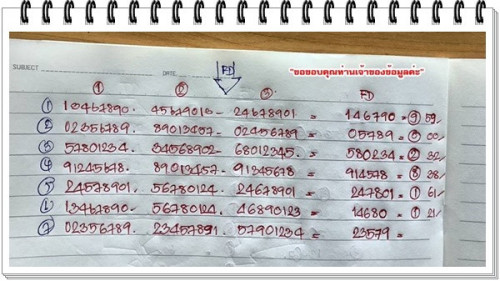 SUBJECT DATE
FD "ขอขอบคุณท่านเจ้าของข้อมูลค่ะ"
① ② ③ FD
① 13467890. 45679010- 24678901 = 146790 = ⑨ 59.
② 02356789. 89013457- 02456789 = 05789 = ③ 00/
③ 57801234. 34568902- 68012345. = 580234 = ② 32/
④ 91245678. 89013457- 91345678 = 914578 = ⑧ 38/
⑤ 24578901. 56780124. 24678901 = 247801 = ① 61/
⑥ 13467890- 56780124. 46890123 = 14680 = ① 21/
⑦ 02356789. 23457891. 57901234 = 23579 =